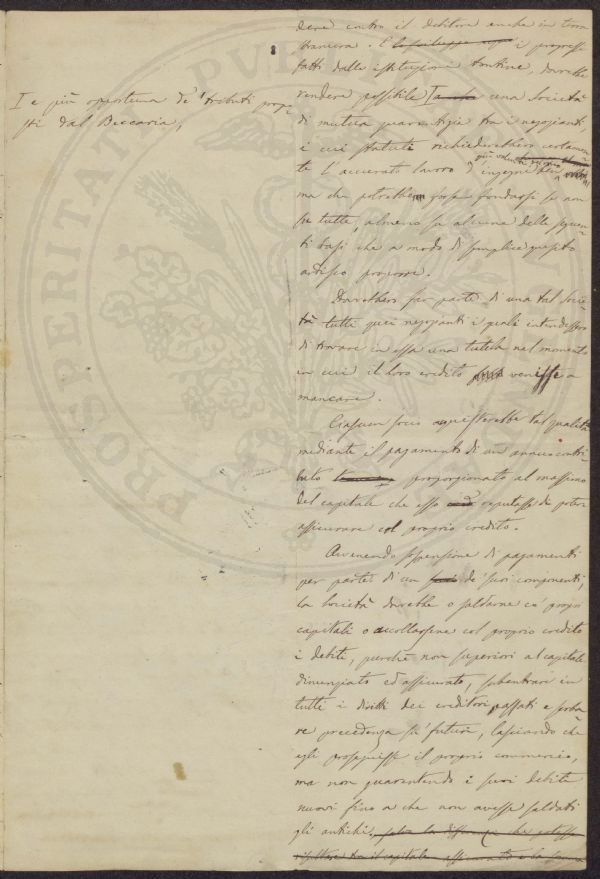 dere contro il debitore anche in terra
straniera. E lo sviluppo i progressi
fatti dalle istituzioni tontine, dovrebbe
rendere possibile una Società
di mutua guarentigie tra i negozianti,
i cui statuti richiederebbero certamen-
te l'accurato lavoro d'ingegni
più valenti
ma che potrebbero forse fondarsi se non
su tutte, almeno su alcune delle seguen-
ti basi che a modo di semplice quesito
ardisco proporre.
Dovrebbero far parte di una tal Socie-
tà tutti quei negozianti i quali intendessero
di trovare in essa una tutela nel momento
in cui il loro credito venisse a
mancare.
Ciascun socio acquisterebbe tal qualità
mediante il pagamento di un annuo contri-
buto proporzionato al massimo
del capitale che esso reputasse di poter
assicurare col proprio credito.
Avvenendo sospensione di pagamenti
per parte di un de' suoi componenti,
la Società dovrebbe o saldarne co' propri
capitali o accollarsene col proprio credito
i debiti, purchè non superiori al capitale
dinunziato ed assicurato, subentrare in
tutti i diritti dei creditori passati e serba-
re precedenza su' futuri, lasciando che
egli proseguisse il proprio commercio,
ma non guarentendo i suoi debiti
nuovi fino a che non avesse saldati
gli antichi, salva la differenza che potesse
risultare tra il capitale assicurato e la somma
I e più opportuna de' tributi propo-
sti dal Beccaria,
PROSPERITATI PUBL